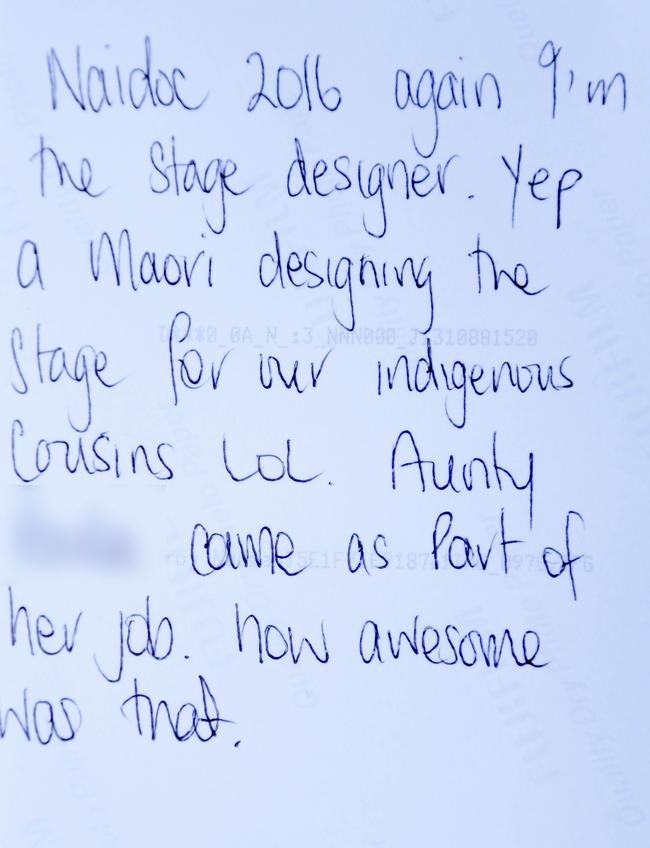 Naidoc 2016 again I'm
the stage designer. Yep
a Maori designing the
stage for our indigenous
cousins LOL. Aunty
came as part of
her job. how awesome
was that.